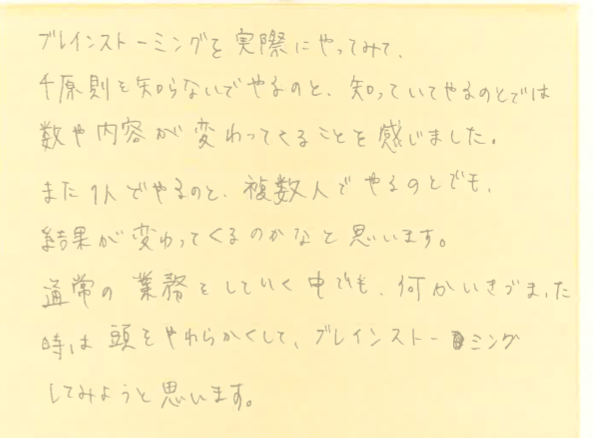 ブレインストーミングを実際にやってみて、
4原則を知らないでやるのと、知っていてやるのとでは
数や内容が変わってくることを感じました。
また1人でやるのと、複数人でやるのとでも、
結果が変わってくるのかなと思います。
通常の業務をしていく中でも、何かいきづまった
時は頭をやわらかくして、ブレインストーミング
してみようと思います。